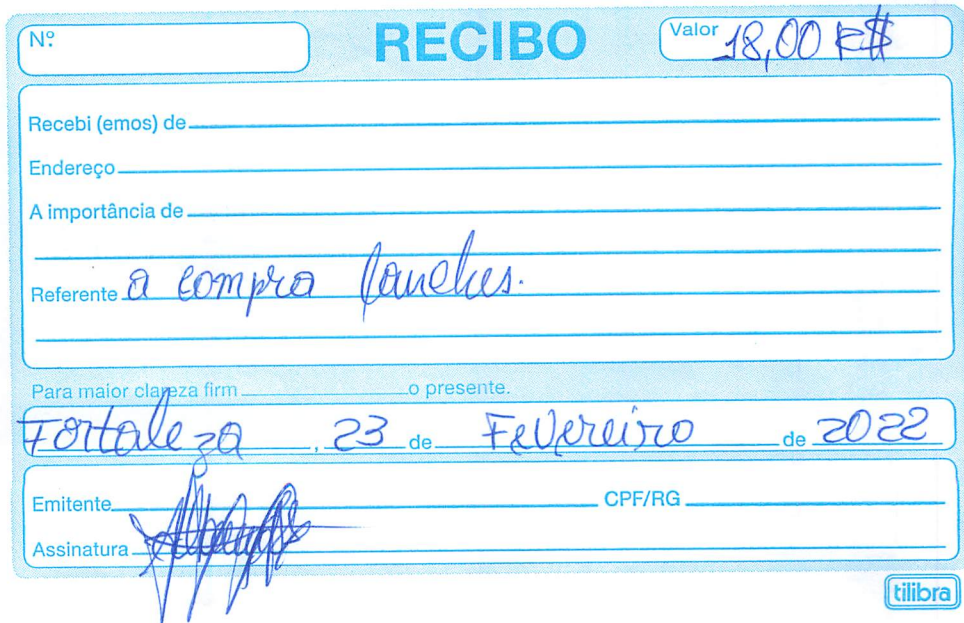 Nº RECIBO Valor 18,00 R$
Recebi (emos) de
Endereço
A importância de
Referente a compra lanches.
Para maior clareza firm o presente.
Fortaleza, 23 de Fevereiro de 2022
Emitente CPF/RG
Assinatura
tilibra